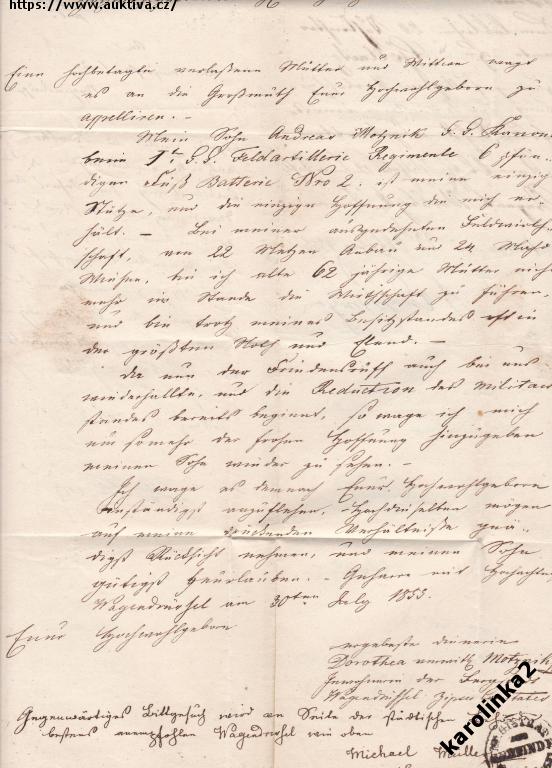 https://www.auktiva.cz/
Eine hochbetagte verlaßene Mutter und Wittwe wagt
es an die Großmuth Euer Hochwohlgeborn zu
appelliren. -
Mein Sohn Andreas Motznik k. k. Kanon.
beim 1ten k. k. Feldartillerie Regimente 6 pfün-
diger Fuß Batterie Nro 2. ist meine einzige
Stütze, und die einzige Hoffnung die mich er-
hält. - Bei meiner ausgedehnten Feldwirth-
schaft, von 22 Metzen Anbau und 24 Mahd
Wiesen, bin ich alte 62 jährige Mutter nicht
mehr im Stande die Wirthschaft zu führen,
und bin trotz meines Besitzstandes oft in
der größten Noth und Elend. -
Da nun der Friedensruf auch bei uns
wiederhallte, und die Reduction des Militär
standes bereits beginnt, so wage ich mich
um so mehr der frohen Hoffnung hinzugeben
meinen Sohn wieder zu sehen. -
Ich wage es demnach Euer Hochwohlgeborn
anzuflehen, Hochdieselben mögen
auf meine drückenden Verhältniße gnä-
digst Rücksicht nehmen, und meinen Sohn
gütigst beurlauben. - Geharre mit Hochachtung
Wagendrüßel am 30ten July 1853.
Euer Hochwohlgeborn
ergebenste Dienerin
Dorothea Motznik
Inwohnerin der
Wagendrüßel Zipser
Gegenwärtiges Bittgesuch wird an Seite der städtischen
bestens anempfohlen Wagendrüßel wie oben
Michael Müller
GEMEINDE
karolinka2